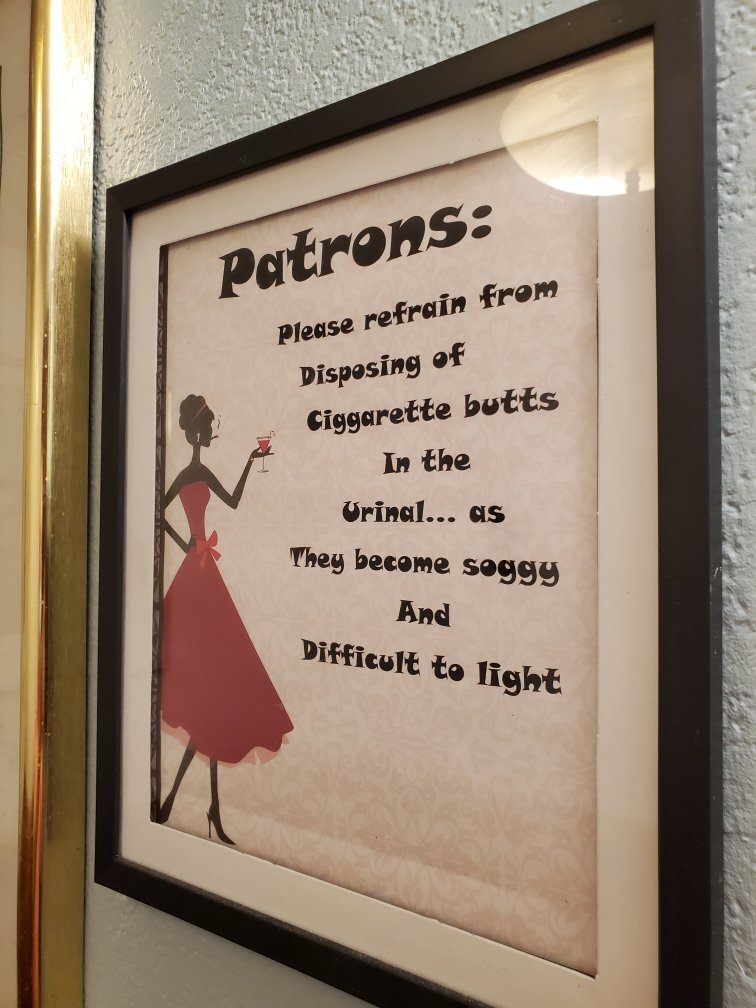 Patrons:
Please refrain from
Disposing of
Ciggarette butts
In the
Urinal... as
They become soggy
And
Difficult to light